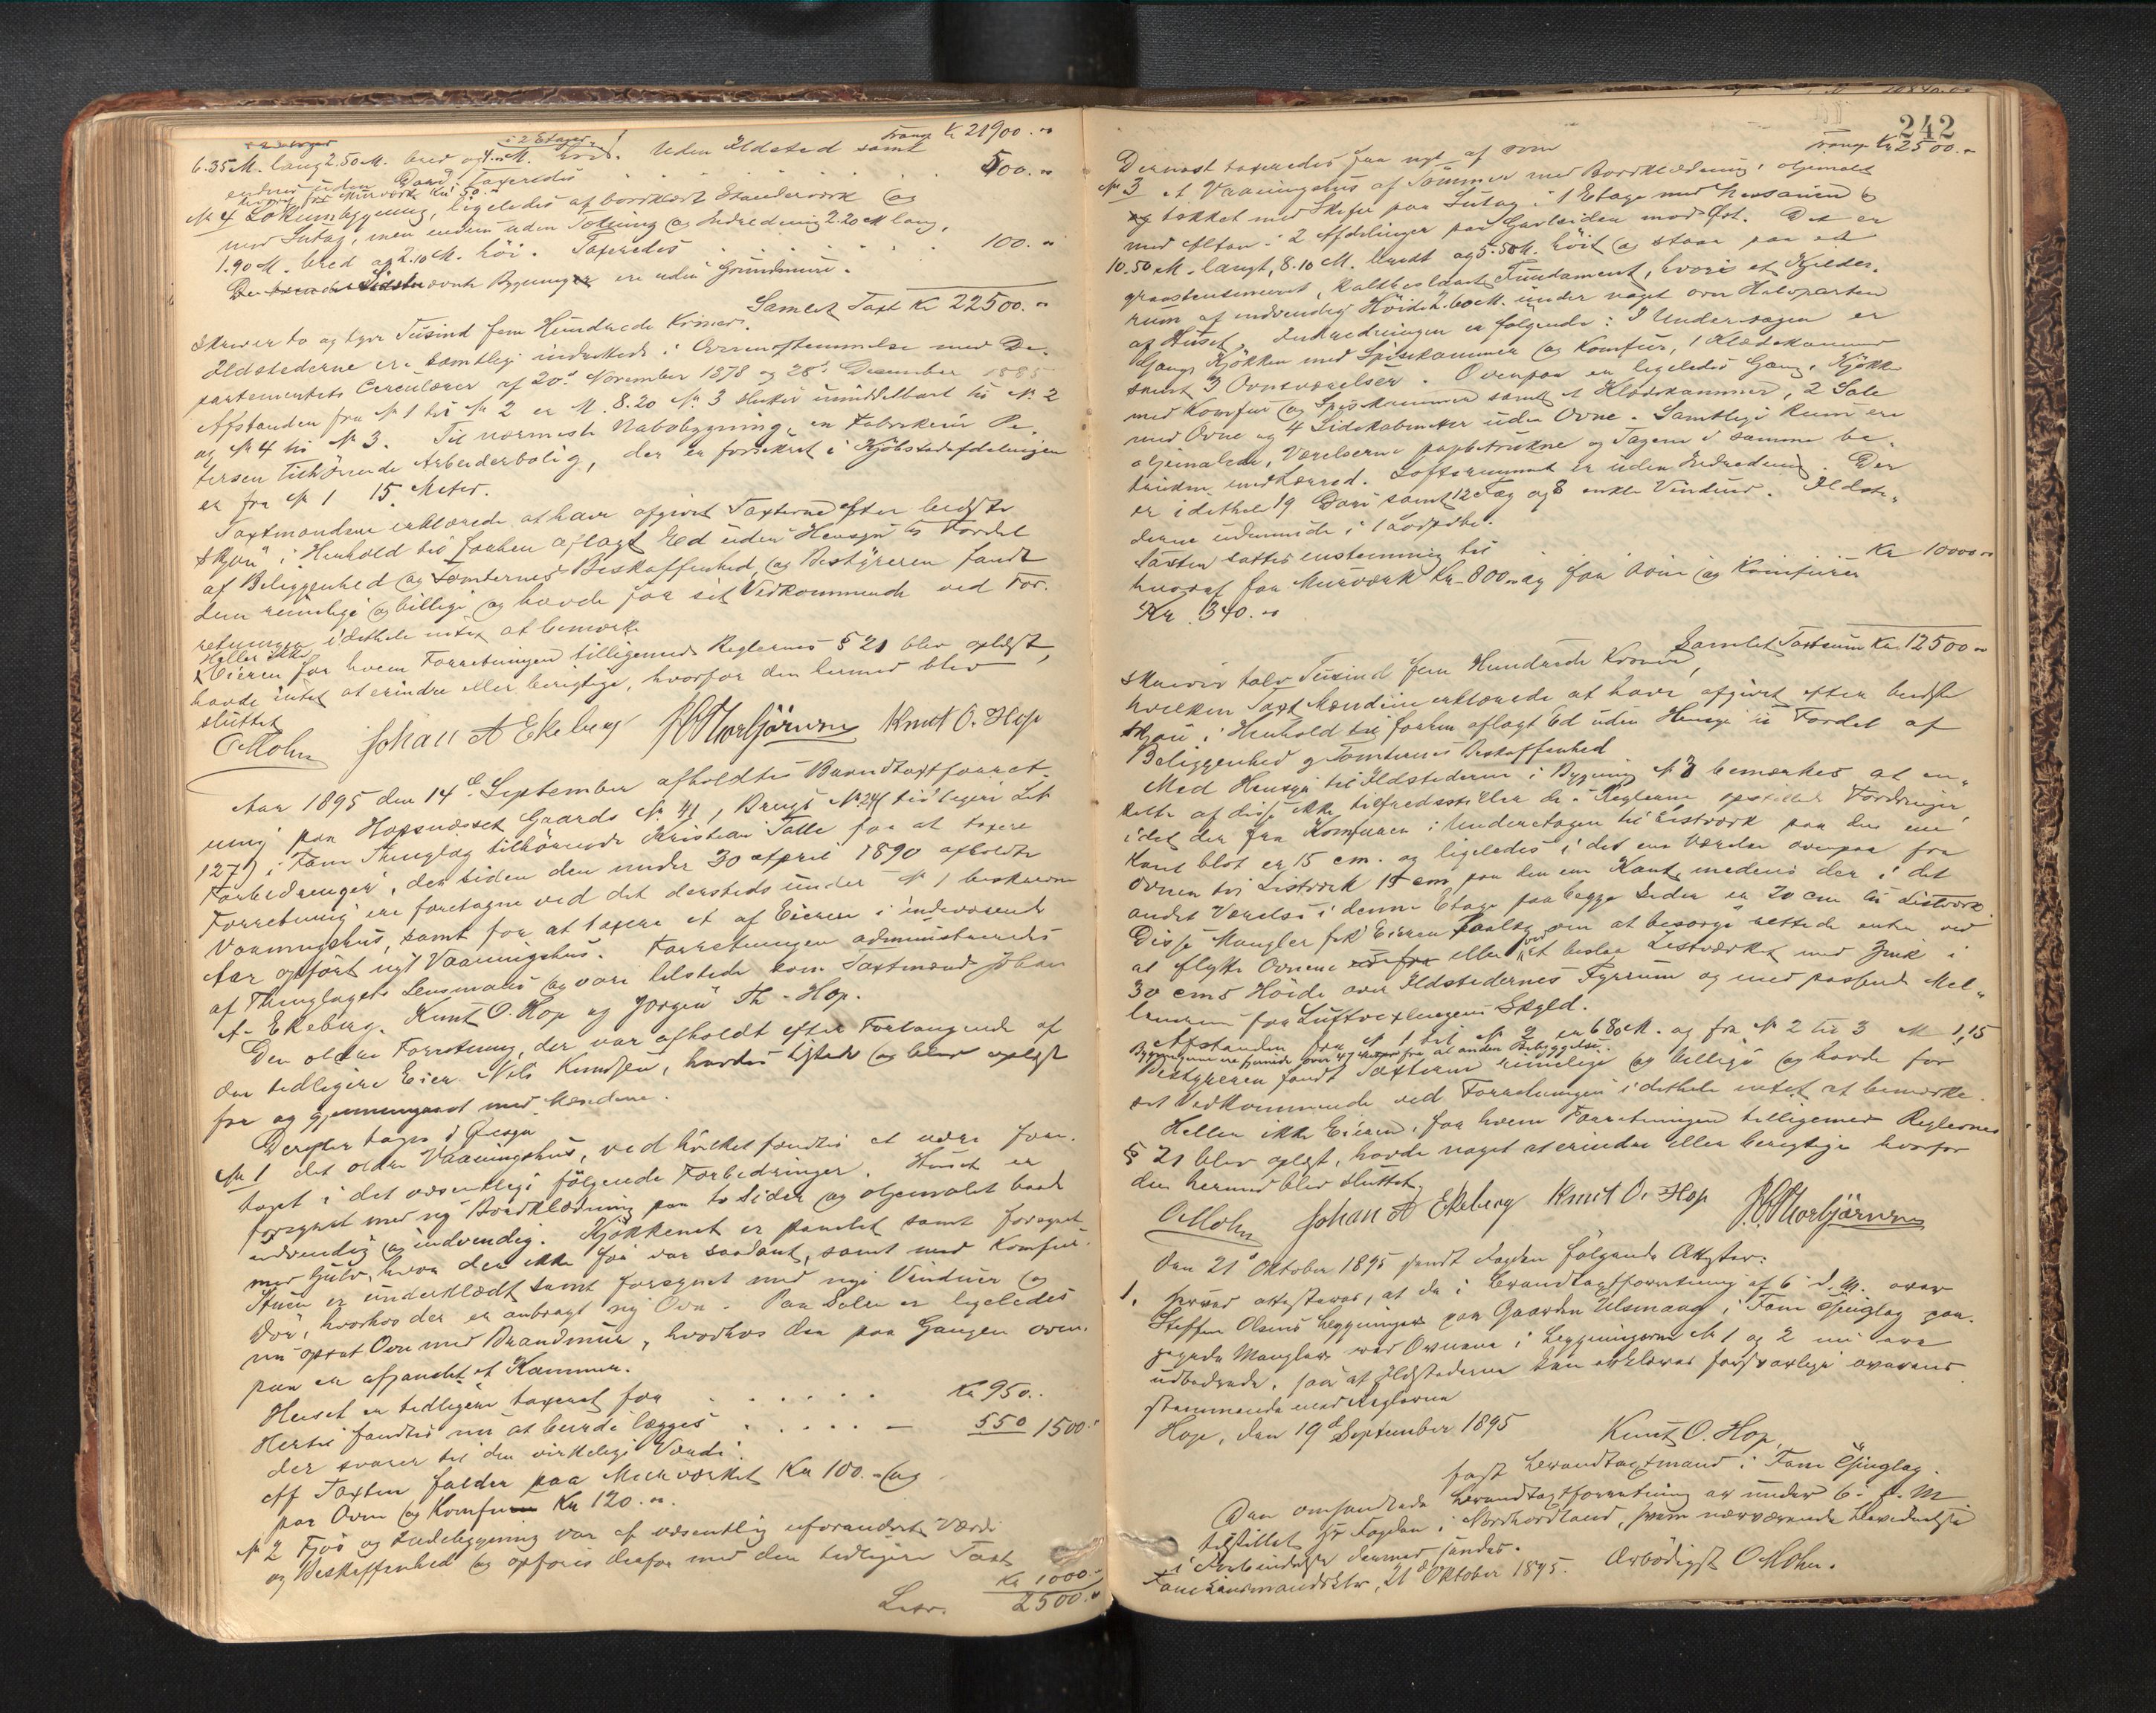 Transp. Kr 21900.00
i 2 Etager
6.35 M. lang 2.50 M. bred og 4.00 M. høi. Uden Ildsted samt
endnu uden Døre. Taxeredes 500.00
hvoraf for Murværk Kr. 50.
№ 4 Lokumbygning, ligeledes af bordklædt Standerværk og
med Sutag, men endnu uden Tækning og Indredning 2.20 M lang,
1.90 M. bred og 2.10 M. høi. Taxeredes 100.00
Sidstnævnte Bygning er uden Grundmure.
Samlet Taxt Kr 22500.00
skriver to og tyve Tusind fem Hundrede Kroner.
Ildstederne ere samtlige indrettede i Overensstemmelse med De-
partementets Cerculærer af 20de November 1878 og 28de December 1885
Afstanden fra № 1 til № 2 er M. 8.20 № 3 støder umiddelbart til № 2
og № 4 til № 3. Til nærmeste Nabobygning, en Fabrikeier Pe-
tersen tilhørende Arbeiderbolig, der er forsikret i Kjøbstadafdelingen
er fra № 1 15 Meter.
Taxtmændene erklærede at have afgivet Taxterne efter bedste
Skjøn i Henhold til forhen aflagt Ed uden Hensyn til Fordel
af Beliggenhed og Tomternes Beskaffenhed og Bestyreren fandt
dem rimelige og billige og havde for sit Vedkommende ved For-
retningen idethele intet at bemærke
Heller ikke
Eieren for hvem Forretningen tilligemed Reglernes § 21 blev oplæst,
havde intet at erindre eller berigtige, hvorfor den hermed blev
sluttet
O Mohn Johan A Ekeberg J Th Thorbjørnsen Knut O. Hop
Aar 1895 den 14de September afholdtes Brandtaxtforret-
ning paa Hopsnæsset Gaards № 41, Brugs № 24 (tidligere
127) i Fane Thinglag tilhørende Kristian Talle for at taxere
Forbedringer, der siden den under 30 April 1890 afholdte
Forretning ere foretagne ved det dersteds under № 1 beskrevne
Vaaningshus, samt for at taxere et af Eieren i indeværende
Aar opført nyt Vaaningshus. Forretningen administreredes
af Thinglagets Lensmand og vare tilstede som Taxtmænd Johan
A. Ekeberg, Knut O. Hop og Jørgen Th. Hop.
Den ældre Forretning, der var afholdt efter Forlangende af
den tidligere Eier Nils Knudsen, havdes tilstede og blev oplæst
for og gjennemgaaet med Mændene.
Derefter toges i Øiesyn
№ 1 det ældre Vaaningshus, ved hvilket fandtes at være fore-
taget i det væsentlige følgende Forbedringer. Huset er
forsynet med ny Bordklædning paa to Sider og oljemalet baade
udvendig og indvendig. Kjøkkenet er panelet samt forsynet
med Gulv, hvor der ikke før var saadant, samt med Komfur.
Stuen er underklædt samt forsynet med nye Vinduer og
Dør, hvorhos der er anbragt ny Ovn. Paa Salen er ligeledes
nu opsat Ovn med Brandmur, hvorhos der paa Gangen oven-
paa er afpanelet et Kammer.
Huset er tidligere taxeret for Kr 950.
Hertil fandtes nu at burde lægges 550 1500.
der svarer til den virkelige Værdi.
Af Taxten falder paa Murværket Kr 100.- og
paa Ovn og Komfur Kr 120.00.
№ 2 Fjøs og Ladebygning var af væsentlig uforandret Værdi
og Beskaffenhed og opføres derfor med den tidligere Taxt
Kr 1000.-
Latr. 2500.00
242
Transp. Kr 2500.-
Dernæst taxeredes for nyt af som
№ 3 et Vaaningshus af Tømmer med Bordklædning, oljemalt
og tækket med Skifer paa Sutag i 1 Etage med Messanin og
med Altan i 2 Afdelinger paa Gavlsiden mod Øst. Det er
10.50 M. langt, 8.10 M. bredt og 5.50 M. høit og staar paa et
graastensmuret, kalkbeslaaet Fundament, hvori et Kjelder-
rum af indvendig Høide 2.60 M. under noget over Halvparten
af Huset. Indredningen er følgende: I Underetagen er
Gang, Kjøkken med Spisekammer og Komfur, 1 Klædekammer
samt 3 Ovnsværelser. Ovenpaa er ligeledes Gang, Kjøkken
med Komfur og Spiskammer samt et Klædskammer, 2 Sale
med Ovne og 4 Sidekabinetter uden Ovne. Samtlige Rum ere
oljemalede, Værelserne papbetrukne og Tagene i samme be-
 Loftsrummet er uden Indredning. Der
er idethele 19 Døre samt 12 Fag og 8 enkle Vinduer. Ildste-
derne udmunde i 1 Loddpibe.
Taxten sattes enstemmig til Kr 10000.00
hvoraf for Murværk Kr. 800.00 og for Ovne og Komfurer
Kr. 340.00
Samlet Taxtsum Kr. 12500.00
skriver tolv Tusind fem Hundrede Kroner,
hvilken Taxt Mændene erklærede at have afgivet efter bedste
Skjøn i Henhold til forhen aflagt Ed uden Hensyn til Fordel af
Beliggenhed og Tomternes Beskaffenhed
Med Hensyn til Ildstederne i Bygning № 3 bemærkes at en-
kelte af disse ikke tilfredsstiller de i Reglerne opstillede Fordringer,
idet der fra Komfuren i Underetagen til Listværk paa den ene
Kant blot er 15 cm. og ligeledes i det ene Værelse ovenpaa fra
Ovnen til Listværk 15 cm paa den ene Kant, medens der i det
andet Værelse i denne Etage paa begge Sider er 20 cm til Listværk.
Disse Mangler fik Eieren Paalæg om at besørge rettede enten ved
at flytte Ovnene eller ved at beslaa Listværket med Zink i
30 cms Høide over Ildstedernes Fyrrum og med passende Mel-
lemrum for Luftvexlingens Skyld.
Afstanden fra № 1 til № 2 er 6.80 M. og fra № 2 til 3 M 1,15
Bygningerne ere fjernede over 47 Meter fra al anden Bebyggelse.
Bestyreren fandt Taxterne rimelige og billige og havde for
sit Vedkommende ved Forretningen idethele intet at bemærke.
Heller ikke Eieren, for hvem Forretningen tilligemed Reglernes
§ 21 blev oplæst, havde noget at erindre eller berigtige hvorfor
den hermed blev sluttet.
O Mohn Johan A Ekeberg Knut O. Hop J Th Thorbjørnsen
Den 21de Oktober 1895 sendt Fogden følgende Attester:
1. Herved attesteres, at de i Brandtaxtforretning af 6 d. M. over
Steffen Olsens Bygninger paa Gaarden Ulsmaag i Fane Thinglag paa-
pegede Mangler ved Ovnene i Bygningerne № 1 og 2 nu ere
udbedrede, saa at Ildstederne kan erklæres forsvarlige overens-
stemmende med Reglerne
Hop, den 19de September 1895
Knut O. Hop,
fast Brandtaxtmand i Fane Thinglag.
Den omhandlede Brandtaxtforretning er under 6. d. M
tilstillet Hr Fogden i Nordhordland, hvem nærværende Bevidnelse
i Forbindelse dermed sendes.
Fane Lensmandsktr, 21de Oktober 1895. Ærbødigst O Mohn.